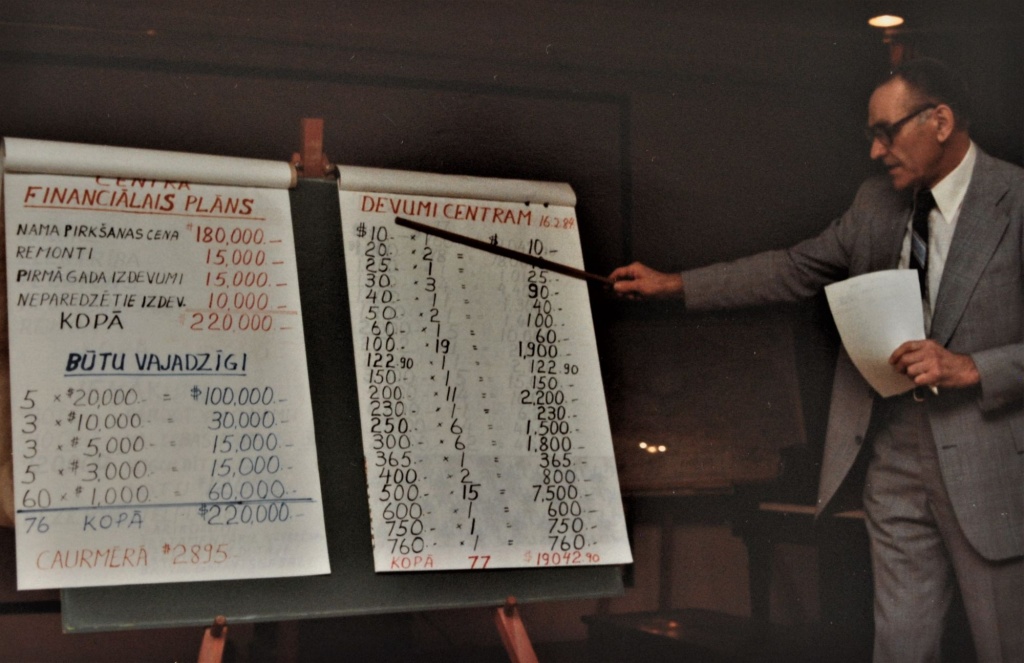 CENTRA
FINANCIĀLAIS PLĀNS
NAMA PIRKŠANAS CENA $180,000.–
REMONTI 15,000.–
PIRMĀ GADA IZDEVUMI 15,000.–
NEPAREDZĒTIE IZDEV. 10,000.–
KOPĀ $220,000.–
BŪTU VAJADZĪGI
5 × $20,000.– = $100,000.–
3 × $10,000.– = 30,000.–
3 × $5,000.– = 15,000.–
5 × $3,000.– = 15,000.–
60 × $1,000.– = 60,000.–
76 KOPĀ $220,000.–
CAURMĒRĀ $2895.–
DEVUMI CENTRAM 16.2.89
$10.– × 1 = $10.–
20.– × 2 =
25.– × 1 = 25.–
30.– × 3 = 90.–
40.– × 1 = 40.–
50.– × 2 = 100.–
60.– × 1 = 60.–
100.– × 19 = 1,900.–
122.90 × 1 = 122.90
150.– × 1 = 150.–
200.– × 11 = 2,200.–
230.– × 1 = 230.–
250.– × 6 = 1,500.–
300.– × 6 = 1,800.–
365.– × 1 = 365.–
400.– × 2 = 800.–
500.– × 15 = 7,500.–
600.– × 1 = 600.–
750.– × 1 = 750.–
760.– × 1 = 760.–
KOPĀ 77 $19042.90